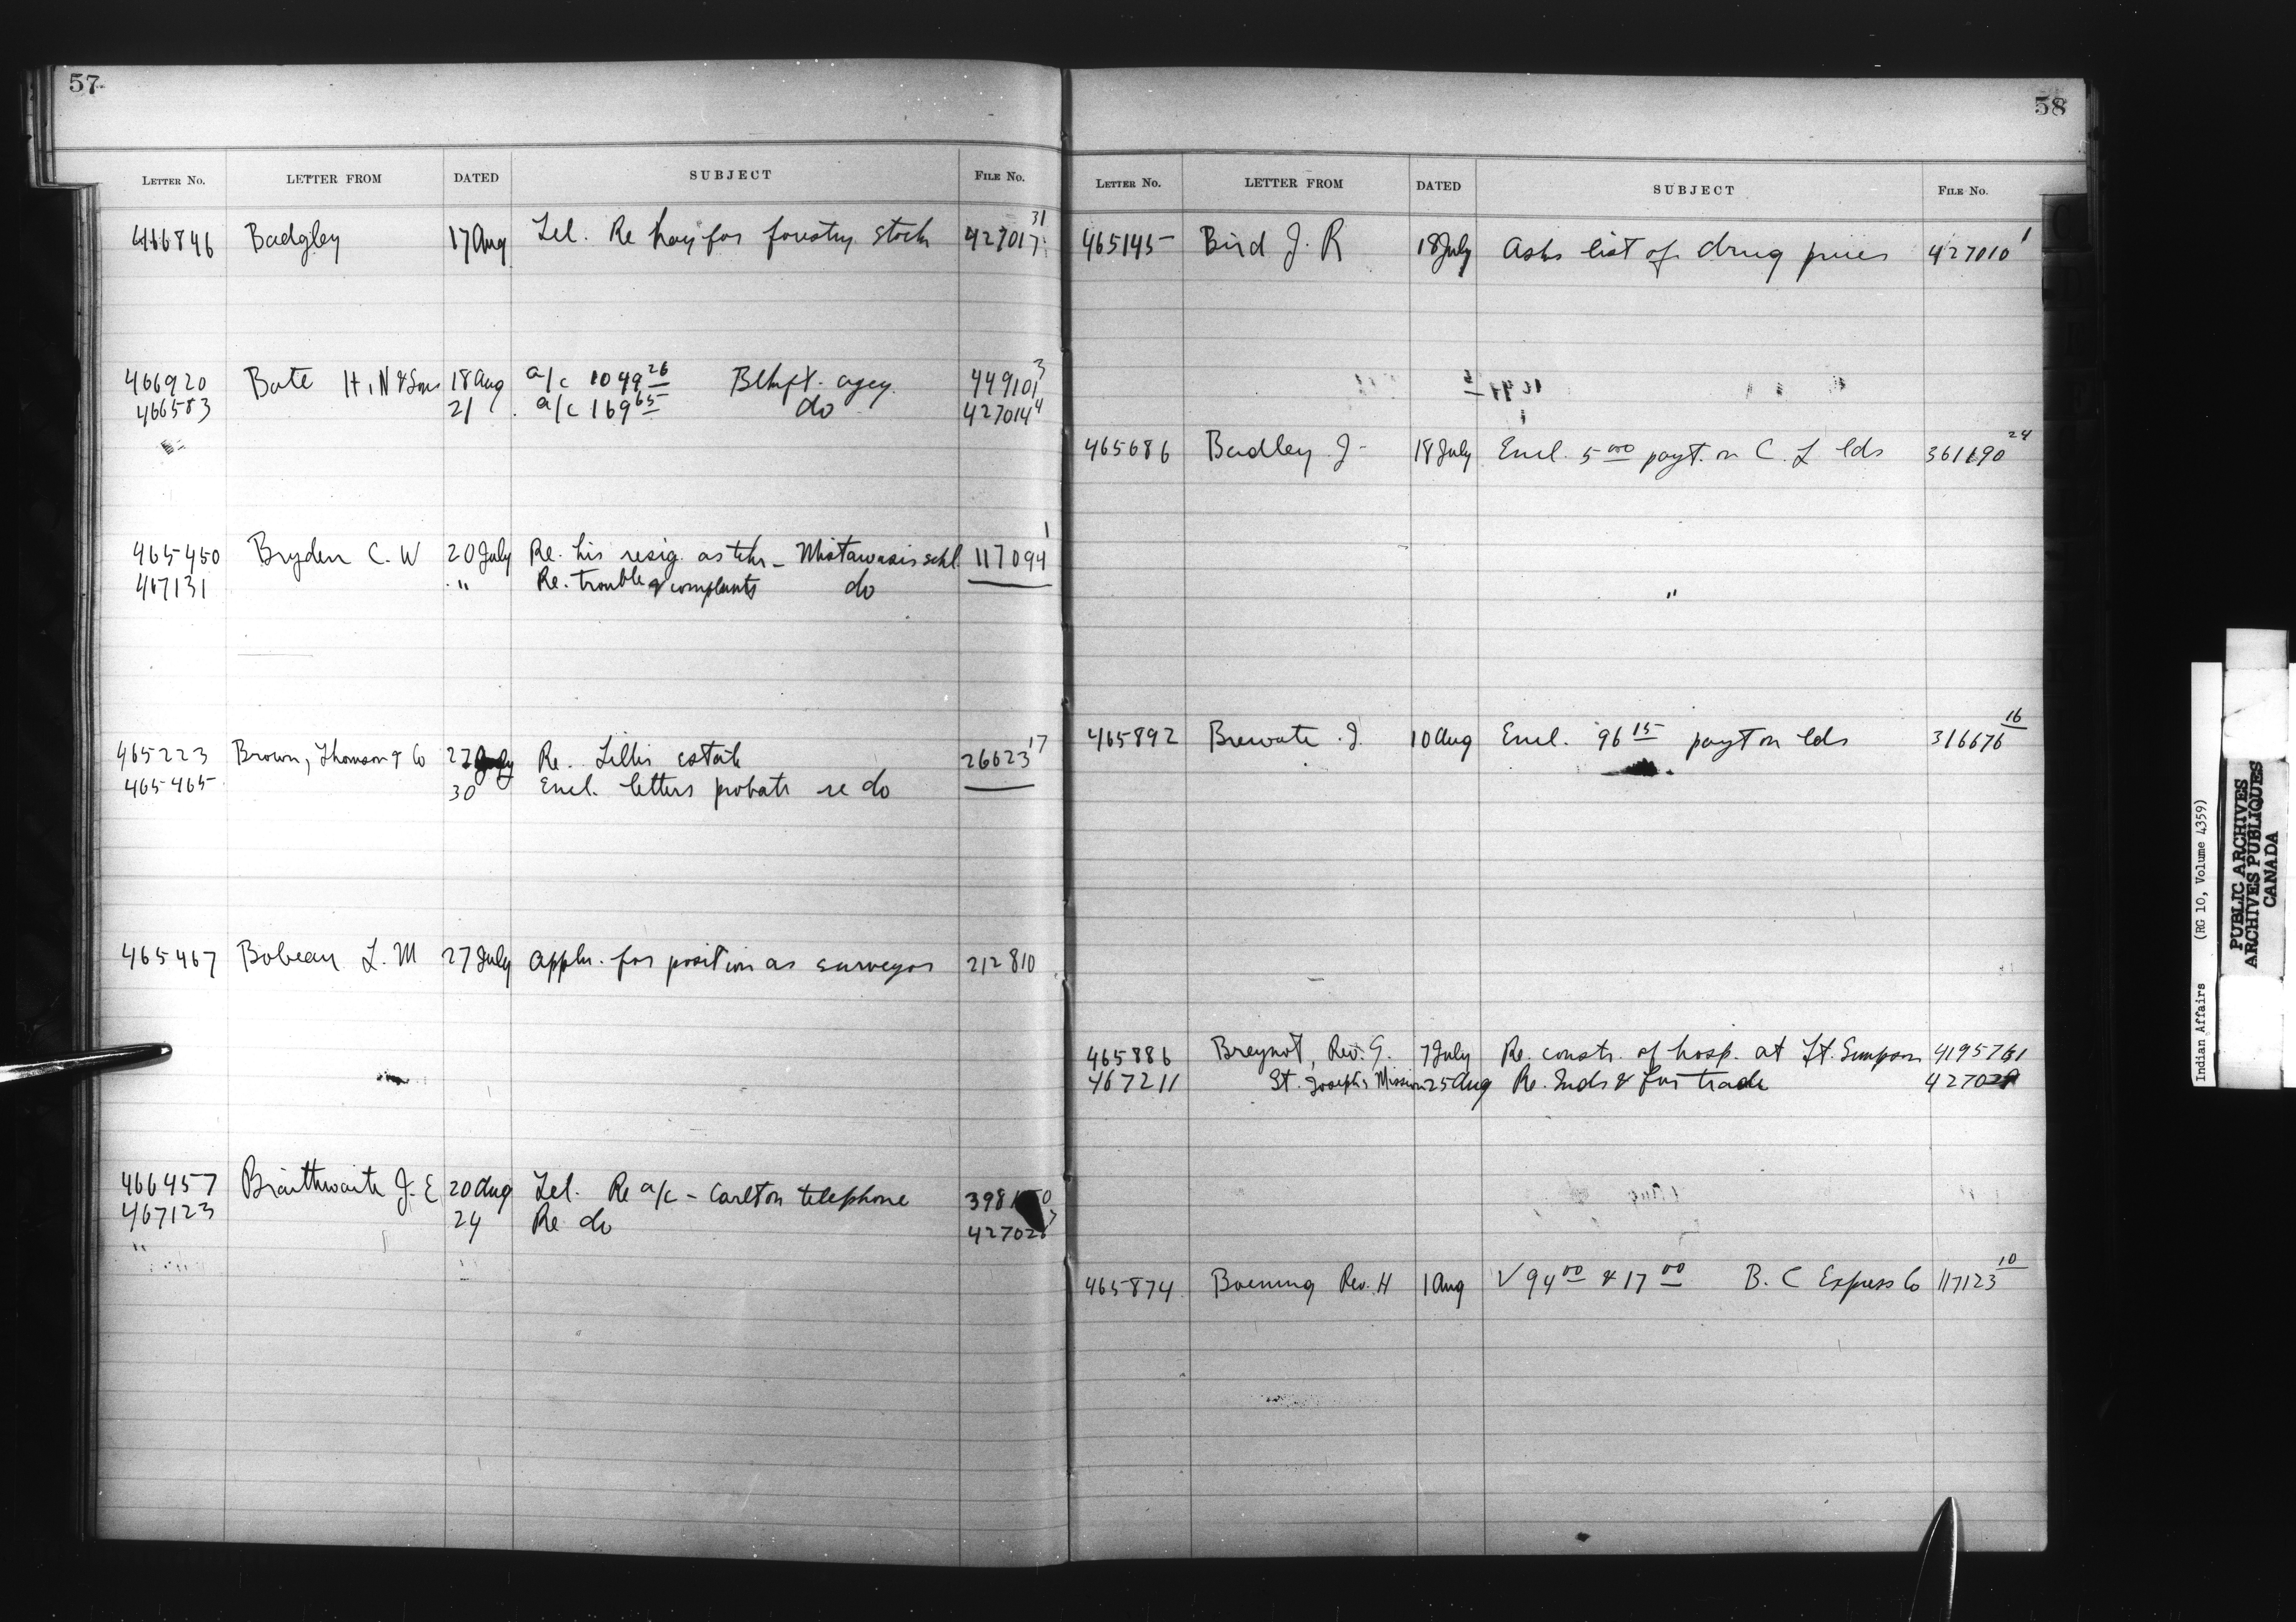 57
LETTER NO. LETTER FROM DATED SUBJECT FILE NO.
466846 Badgley 17 Aug Tel. Re hay for forestry stock 427017 31
466920 Bate H. N & Sons 18 Aug a/c 1049 26 Blkft. agcy. 449101 3
466583 21 a/c 169 65 do 427014 4
465450 Bryden C. W 20 July Re. his resig. as tchr - Mistawasis schl. 117094 1
467131 " Re. trouble & complaints do
465223 Brown, Thomson & Co 27 July Re. Lillis estate 26623 17
465465 30 Encl. letters probate re do
465467 L. M 27 July appln. for position as surveyor 212810
466457 Braithwaite J. E 20 Aug Tel. Re a/c - Carlton telephone 398
467123 24 Re do 42702
58
LETTER NO. LETTER FROM DATED SUBJECT FILE NO.
465145 Bird J. R 18 July Asks list of drug prices 427010 1
465686 Badley J 18 July Encl. 5 00 payt. on C. L lds 361190 24
465892 J. 10 Aug Encl. 96 15 payt on lds 316676 16
465886 Breynat, Rev. G. 7 July Re. constr. of hosp. at Ft. Simpson
467211 St. Joseph's Mission 25 Aug Re. Inds & fur trade
465874 Boening Rev. H 1 Aug √ 94 00 & 17 00 B. C Express Co 117123 10
Indian Affairs (RG 10, Volume 4359)
PUBLIC ARCHIVES
ARCHIVES PUBLIQUES
CANADA